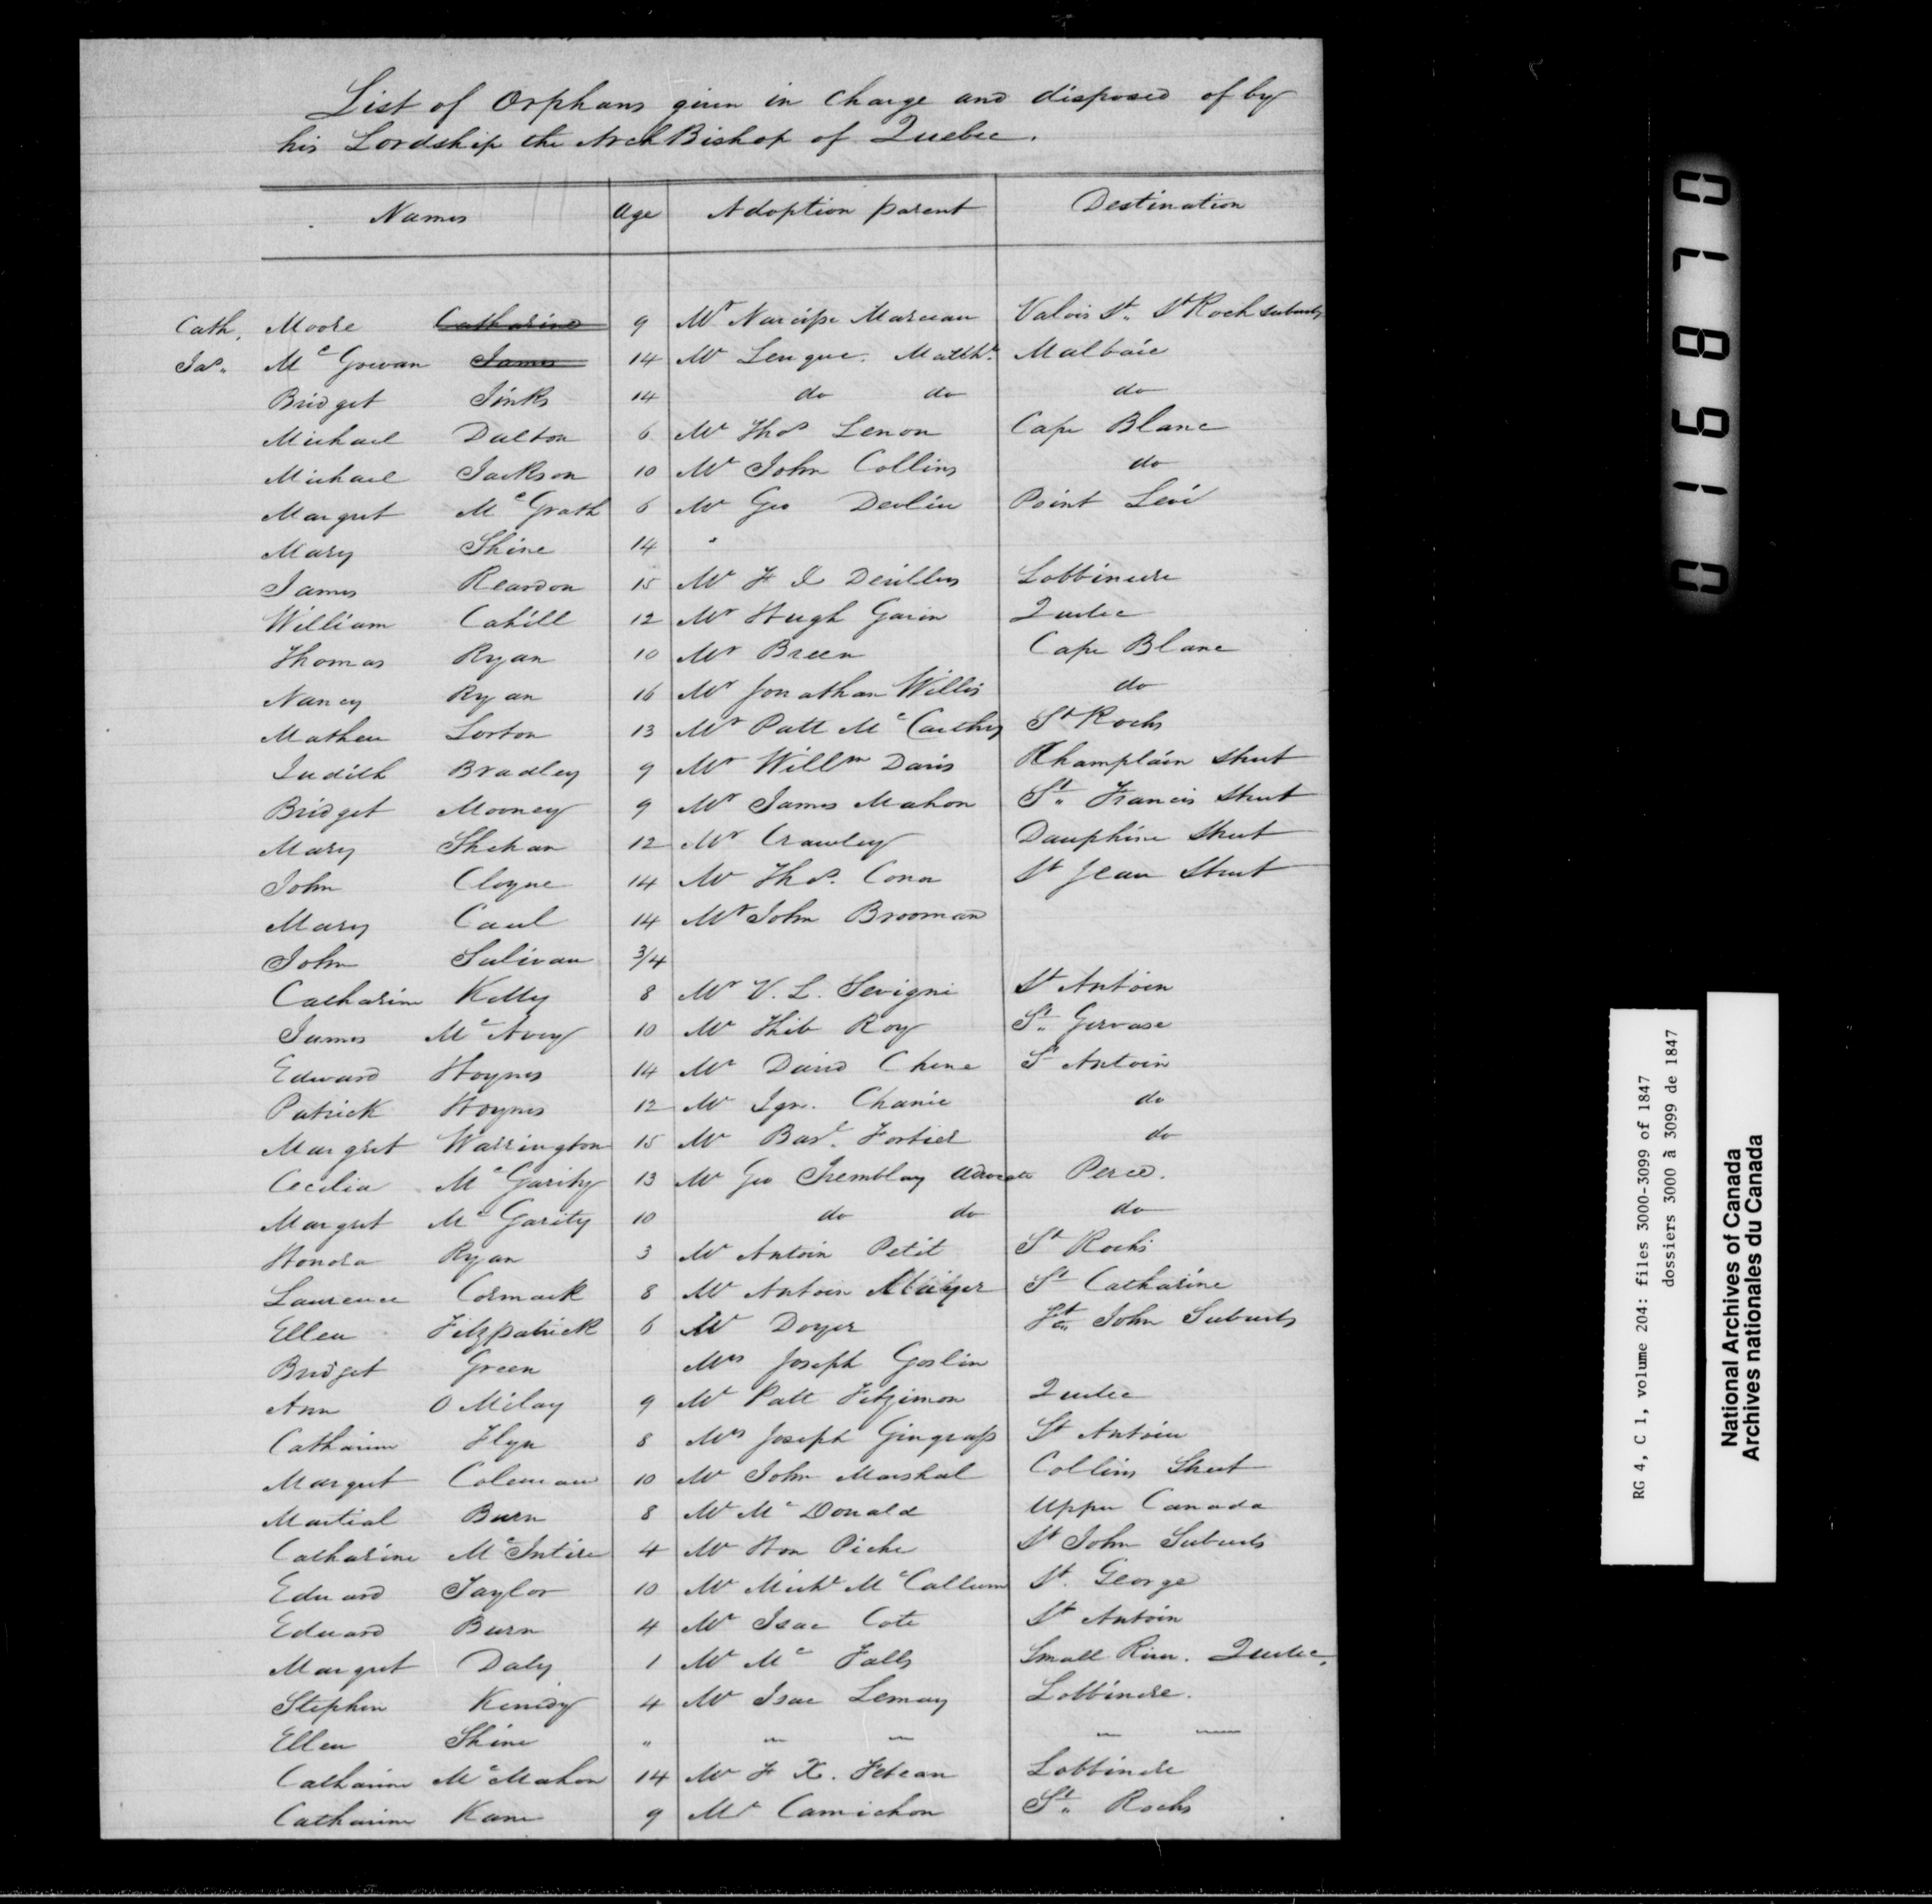 List of Orphans given in Charge and disposed of by
his Lordship the ArchBishop of Quebec.
Names Age Adoption parent Destination
Cath. Moore Catharine 9 Mr Narcisse Marceau Valois St. St Roch suburbs
Jas. McGowan James 14 Mr Malbaie
Bridget Jinks 14 do do do
Michael Dalton 6 Mr Thos Lenon Cape Blanc
Michael Jackson 10 Mr John Collins do
Margret McGrath 6 Mr Geo Devlin Point Levi
Mary Shine 14
James Reardon 15 Mr F Lotbiniere
William Cahill 12 Mr Hugh Gavin Quebec
Thomas Ryan 10 Mr Breen Cape Blanc
Nancy Ryan 16 Mr Jonathan Willis do
Mathew Lorton 13 Mr Patt McCarthy St Rochs
Judith Bradley 9 Mr Willm Davis Champlain Street
Bridget Mooney 9 Mr James Mahon St. Francis Street
Mary Shehan 12 Mr Crawley Dauphine Street
John Cloyne 14 Mr Thos. Conn St Jean Street
Mary Caul 14 Mr John Brooman
John Sulivan 3/4
Catharine Kelly 8 Mr V. L. Sevigni St Antoin
James McAvoy 10 Mr Thib Roy St. Gervase
Edward Hoynes 14 Mr David Chene St Antoin
Patrick Hoynes 12 Mr Ign. Chanie do
Margret Warrington 15 Mr Basl. Fortier do
Cecilia McGarity 13 Mr Geo Tremblay Advocate Perce.
Margret McGarity 10 do do do
Honora Ryan 3 Mr Antoin Petit St Rochs
Laurence Cormack 8 Mr Antoin St Catharine
Ellen Fitzpatrick 6 Mr Doyer St. John Suburbs
Bridget Green Mrs Joseph Goslin
Ann O Milay 9 Mr Patt Fitzimon Quebec
Catharine Flyn 8 Mrs Joseph Gingrass St Antoin
Margret Coleman 10 Mr John Marshal Collins Street
Martial Burn 8 Mr McDonald Upper Canada
Catharine McIntire 4 Mr Hon Piche St John Suburbs
Edward Taylor 10 Mr Michl McCallum St. George
Edward Burn 4 Mr Isac Cote St Antoin
Margret Daly 1 Mr Mc Falls Small River. Quebec.
Stephen Kenidy 4 Mr Isac Lemay Lotbiniere.
Ellen Shine "
Catharine McMahon 14 Mr F X. Lotbiniere
Catharine Kane 9 Mr Camichon St. Rochs
016870
RG 4, C 1, volume 204: files 3000-3099 of 1847
dossiers 3000 à 3099 de 1847
National Archives of Canada
Archives nationales du Canada